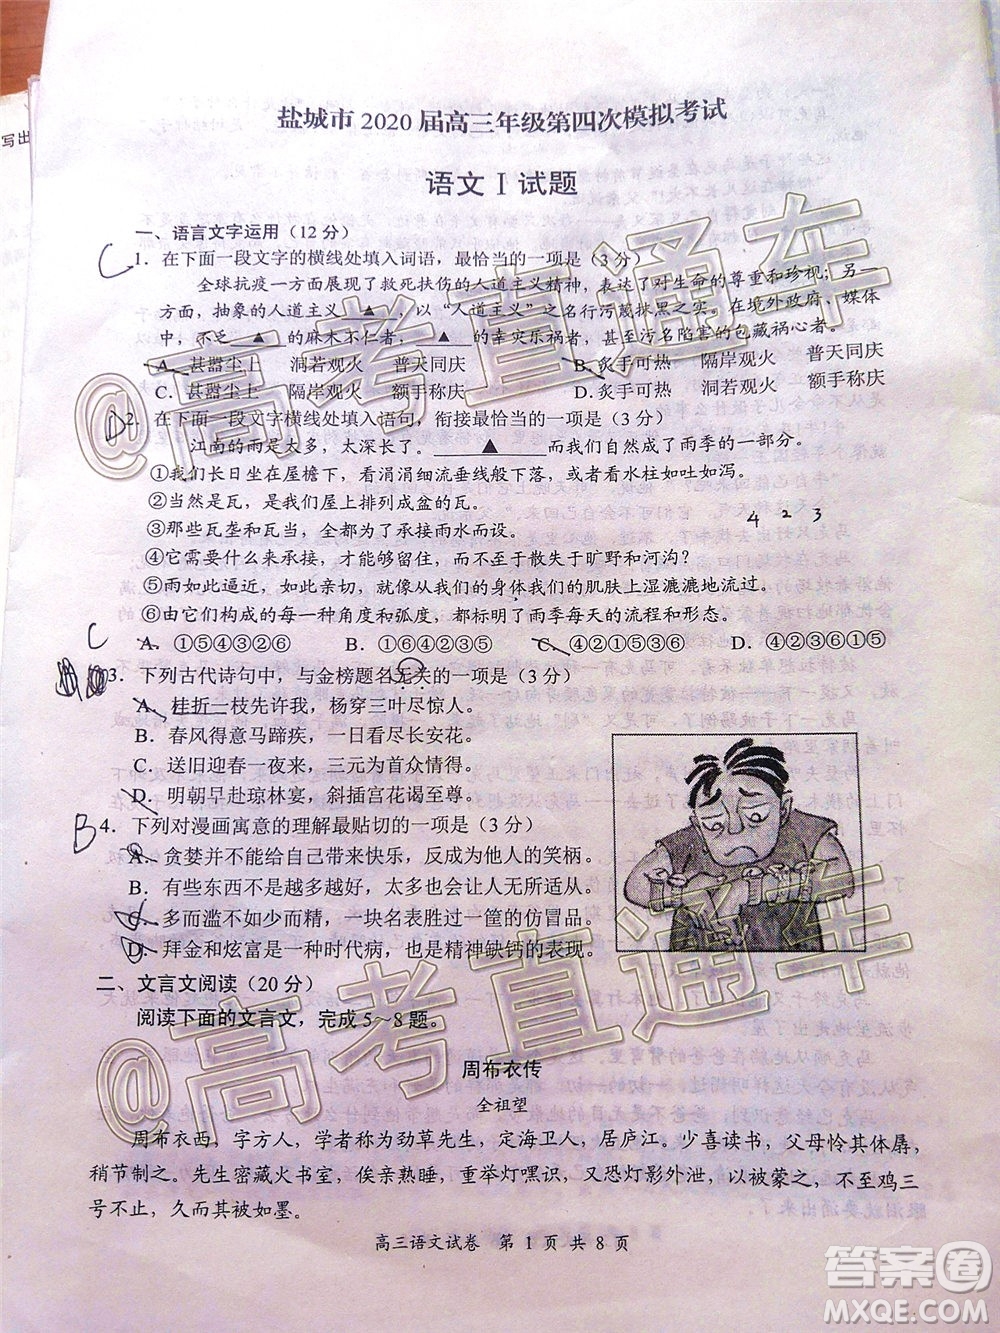 写出
盐城市 2020 届高三年级第四次模拟考试
语文 I 试题
一、语言文字运用（12 分）
C 1．在下面一段文字的横线处填入词语，最恰当的一项是（3 分）
全球抗疫一方面展现了救死扶伤的人道主义精神，表达了对生命的尊重和珍视；另一
方面，抽象的人道主义 ▲ ，以“人道主义”之名行污蔑抹黑之实。尤其是境外政府、媒体
中，不乏 ▲ 的麻木不仁者， ▲ 的幸灾乐祸者，甚至污名陷害的包藏祸心者。
A．甚嚣尘上 洞若观火 普天同庆 B．炙手可热 隔岸观火 普天同庆
C．甚嚣尘上 隔岸观火 额手称庆 D．炙手可热 洞若观火 额手称庆
D 2．在下面一段文字横线处填入语句，衔接最恰当的一项是（3 分）
江南的雨是太多，太深长了。 ▲ 而我们自然成了雨季的一部分。
①我们长日坐在屋檐下，看涓涓细流垂线般落下，或者看水柱如吐如泻。
②当然是瓦，是我们屋上排列成盆的瓦。
③那些瓦垄和瓦当，全都为了承接雨水而设。
4 2 3
④它需要什么来承接，才能够留住，而不至于散失于旷野和河沟？
⑤雨如此逼近，如此亲切，就像从我们的身体我们的肌肤上湿漉漉地流过。
⑥由它们构成的每一种角度和弧度，都标明了雨季每天的流程和形态。
A．①⑤④③②⑥ B．①⑥④②⑤③ C．④②①⑤③⑥ D．④②③⑥①⑤
C 3．下列古代诗句中，与金榜题名无关的一项是（3 分）
A．桂折一枝先许我，杨穿三叶尽惊人。
B．春风得意马蹄疾，一日看尽长安花。
C．送旧迎春一夜来，三元为首众情谐。
D．明朝早赴琼林宴，斜插宫花谒至尊。
B 4．下列对漫画寓意的理解最贴切的一项是（3 分）
A．贪婪并不能给自己带来快乐，反成为他人的笑柄。
B．有些东西不是越多越好，太多也会让人无所适从。
C．多而滥不如少而精，一块名表胜过一筐的仿冒品。
D．拜金和炫富是一种时代病，也是精神缺钙的表现。
二、文言文阅读（20 分）
阅读下面的文言文，完成 5～8 题。
周布衣传
全祖望
周布衣西，字方人，学者称为劲草先生，定海卫人，居庐江。少喜读书，父母怜其体孱，
稍节制之。先生密藏火书室，俟亲熟睡，重举灯嘿识，又恐灯影外泄，以被蒙之，不至鸡三
号不止，久而其被如墨。
高三语文试卷 第 1 页 共 8 页
@高考直通车
@高考直通车
答案圈
MXQE.COM